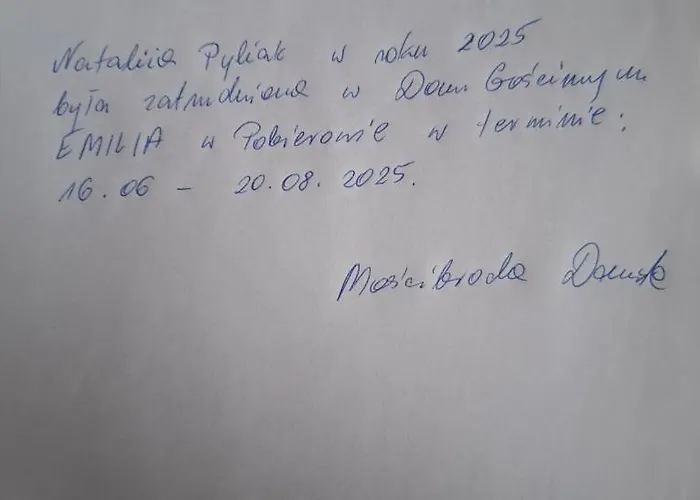 Nataliia Pyliak w roku 2025
była zatrudniona w Domu Gościnnym
EMILIA w Pobierowie w terminie:
16.06 - 20.08.2025.
Mościbroda